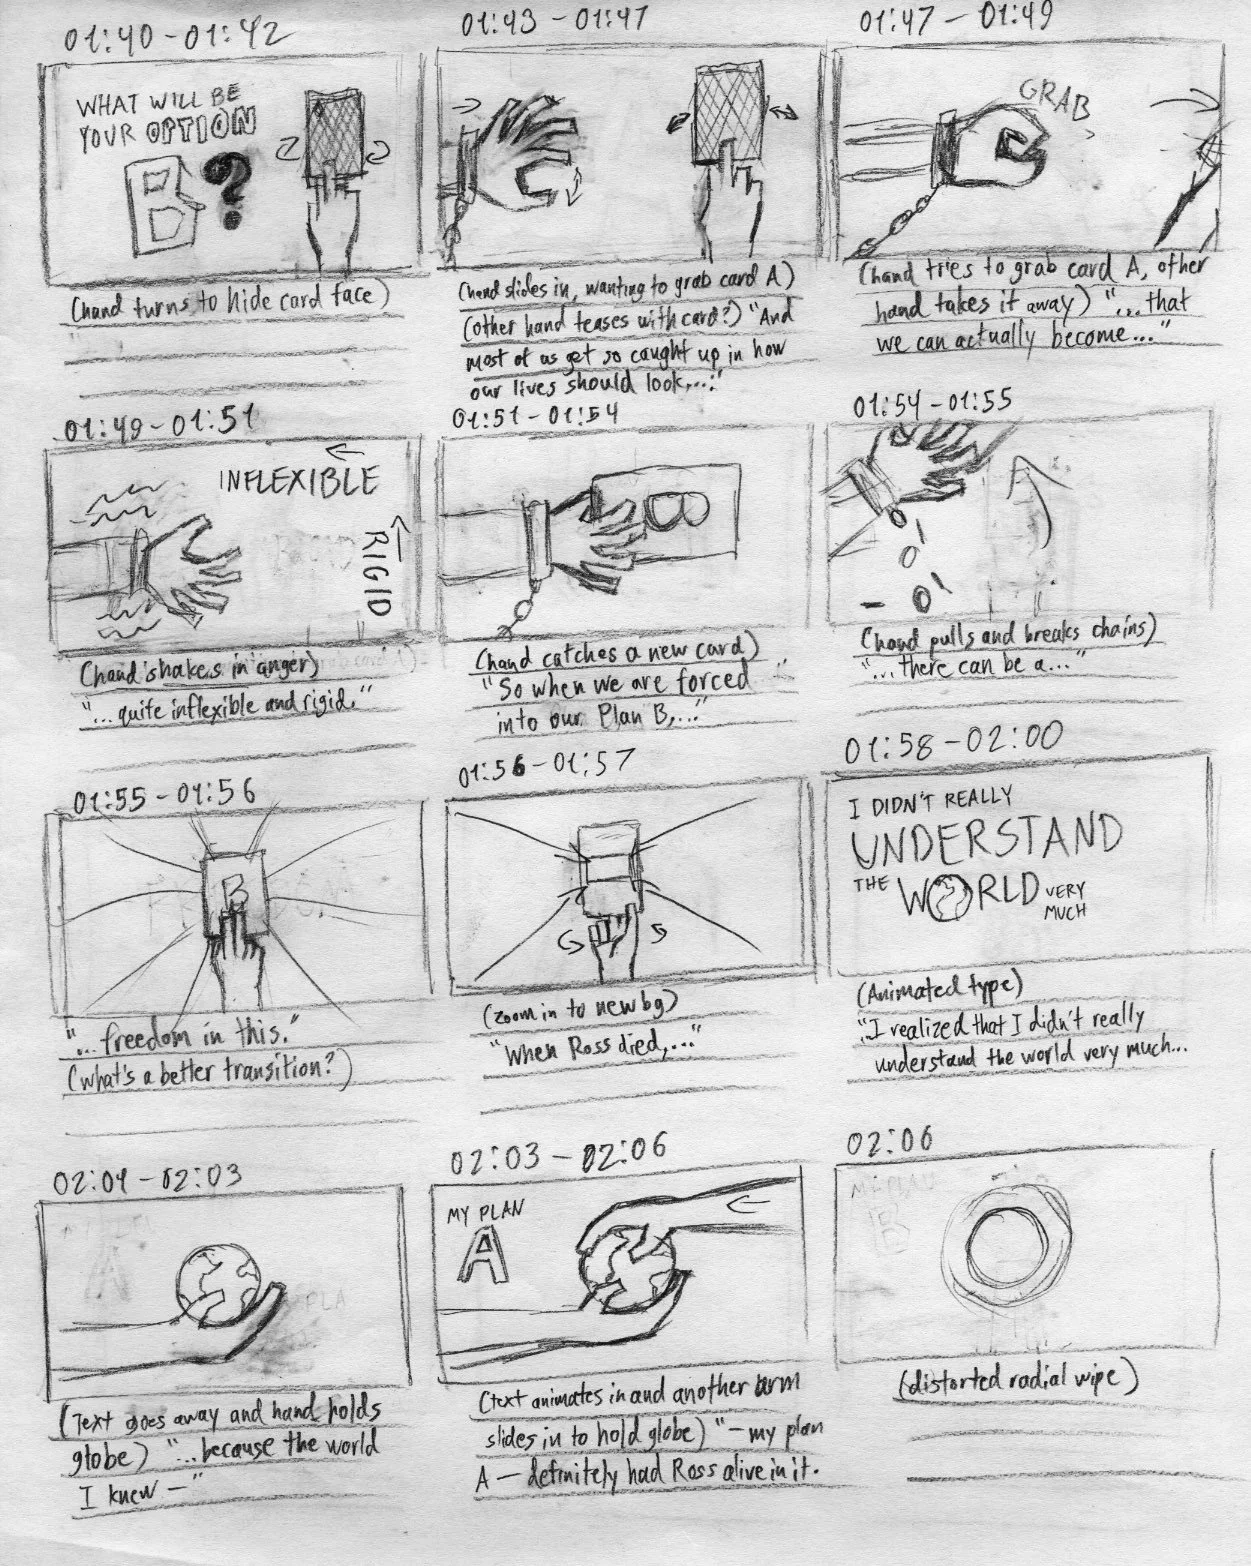 01:40-01:42
WHAT WILL BE
YOUR OPTION
B?
(hand turns to hide card face)
01:43-01:47
(hand slides in, wanting to grab card A)
(other hand teases with card?) "And
most of us get so caught up in how
our lives should look,..."
01:47-01:49
GRAB
(hand tries to grab card A, other
hand takes it away) "...that
we can actually become..."
01:49-01:51
INFLEXIBLE
RIGID
(hand shakes in anger)
"...quite inflexible and rigid."
01:51-01:54
B
(hand catches a new card)
"So when we are forced
into our Plan B,..."
01:54-01:55
(hand pulls and breaks chains)
"...there can be a..."
01:55-01:56
B
"...freedom in this."
(what's a better transition?)
01:56-01:57
(zoom in to new bg)
"When Ross died,..."
01:58-02:00
I DIDN'T REALLY
UNDERSTAND
THE WORLD VERY
MUCH
(Animated type)
"I realized that I didn't really
understand the world very much...
02:01-02:03
(Text goes away and hand holds
globe) "...because the world
I knew —"
02:03-02:06
MY PLAN
A
(text animates in and another arm
slides in to hold globe) "—my plan
A — definitely had Ross alive in it.
02:06
MY PLAN
B
(distorted radial wipe)